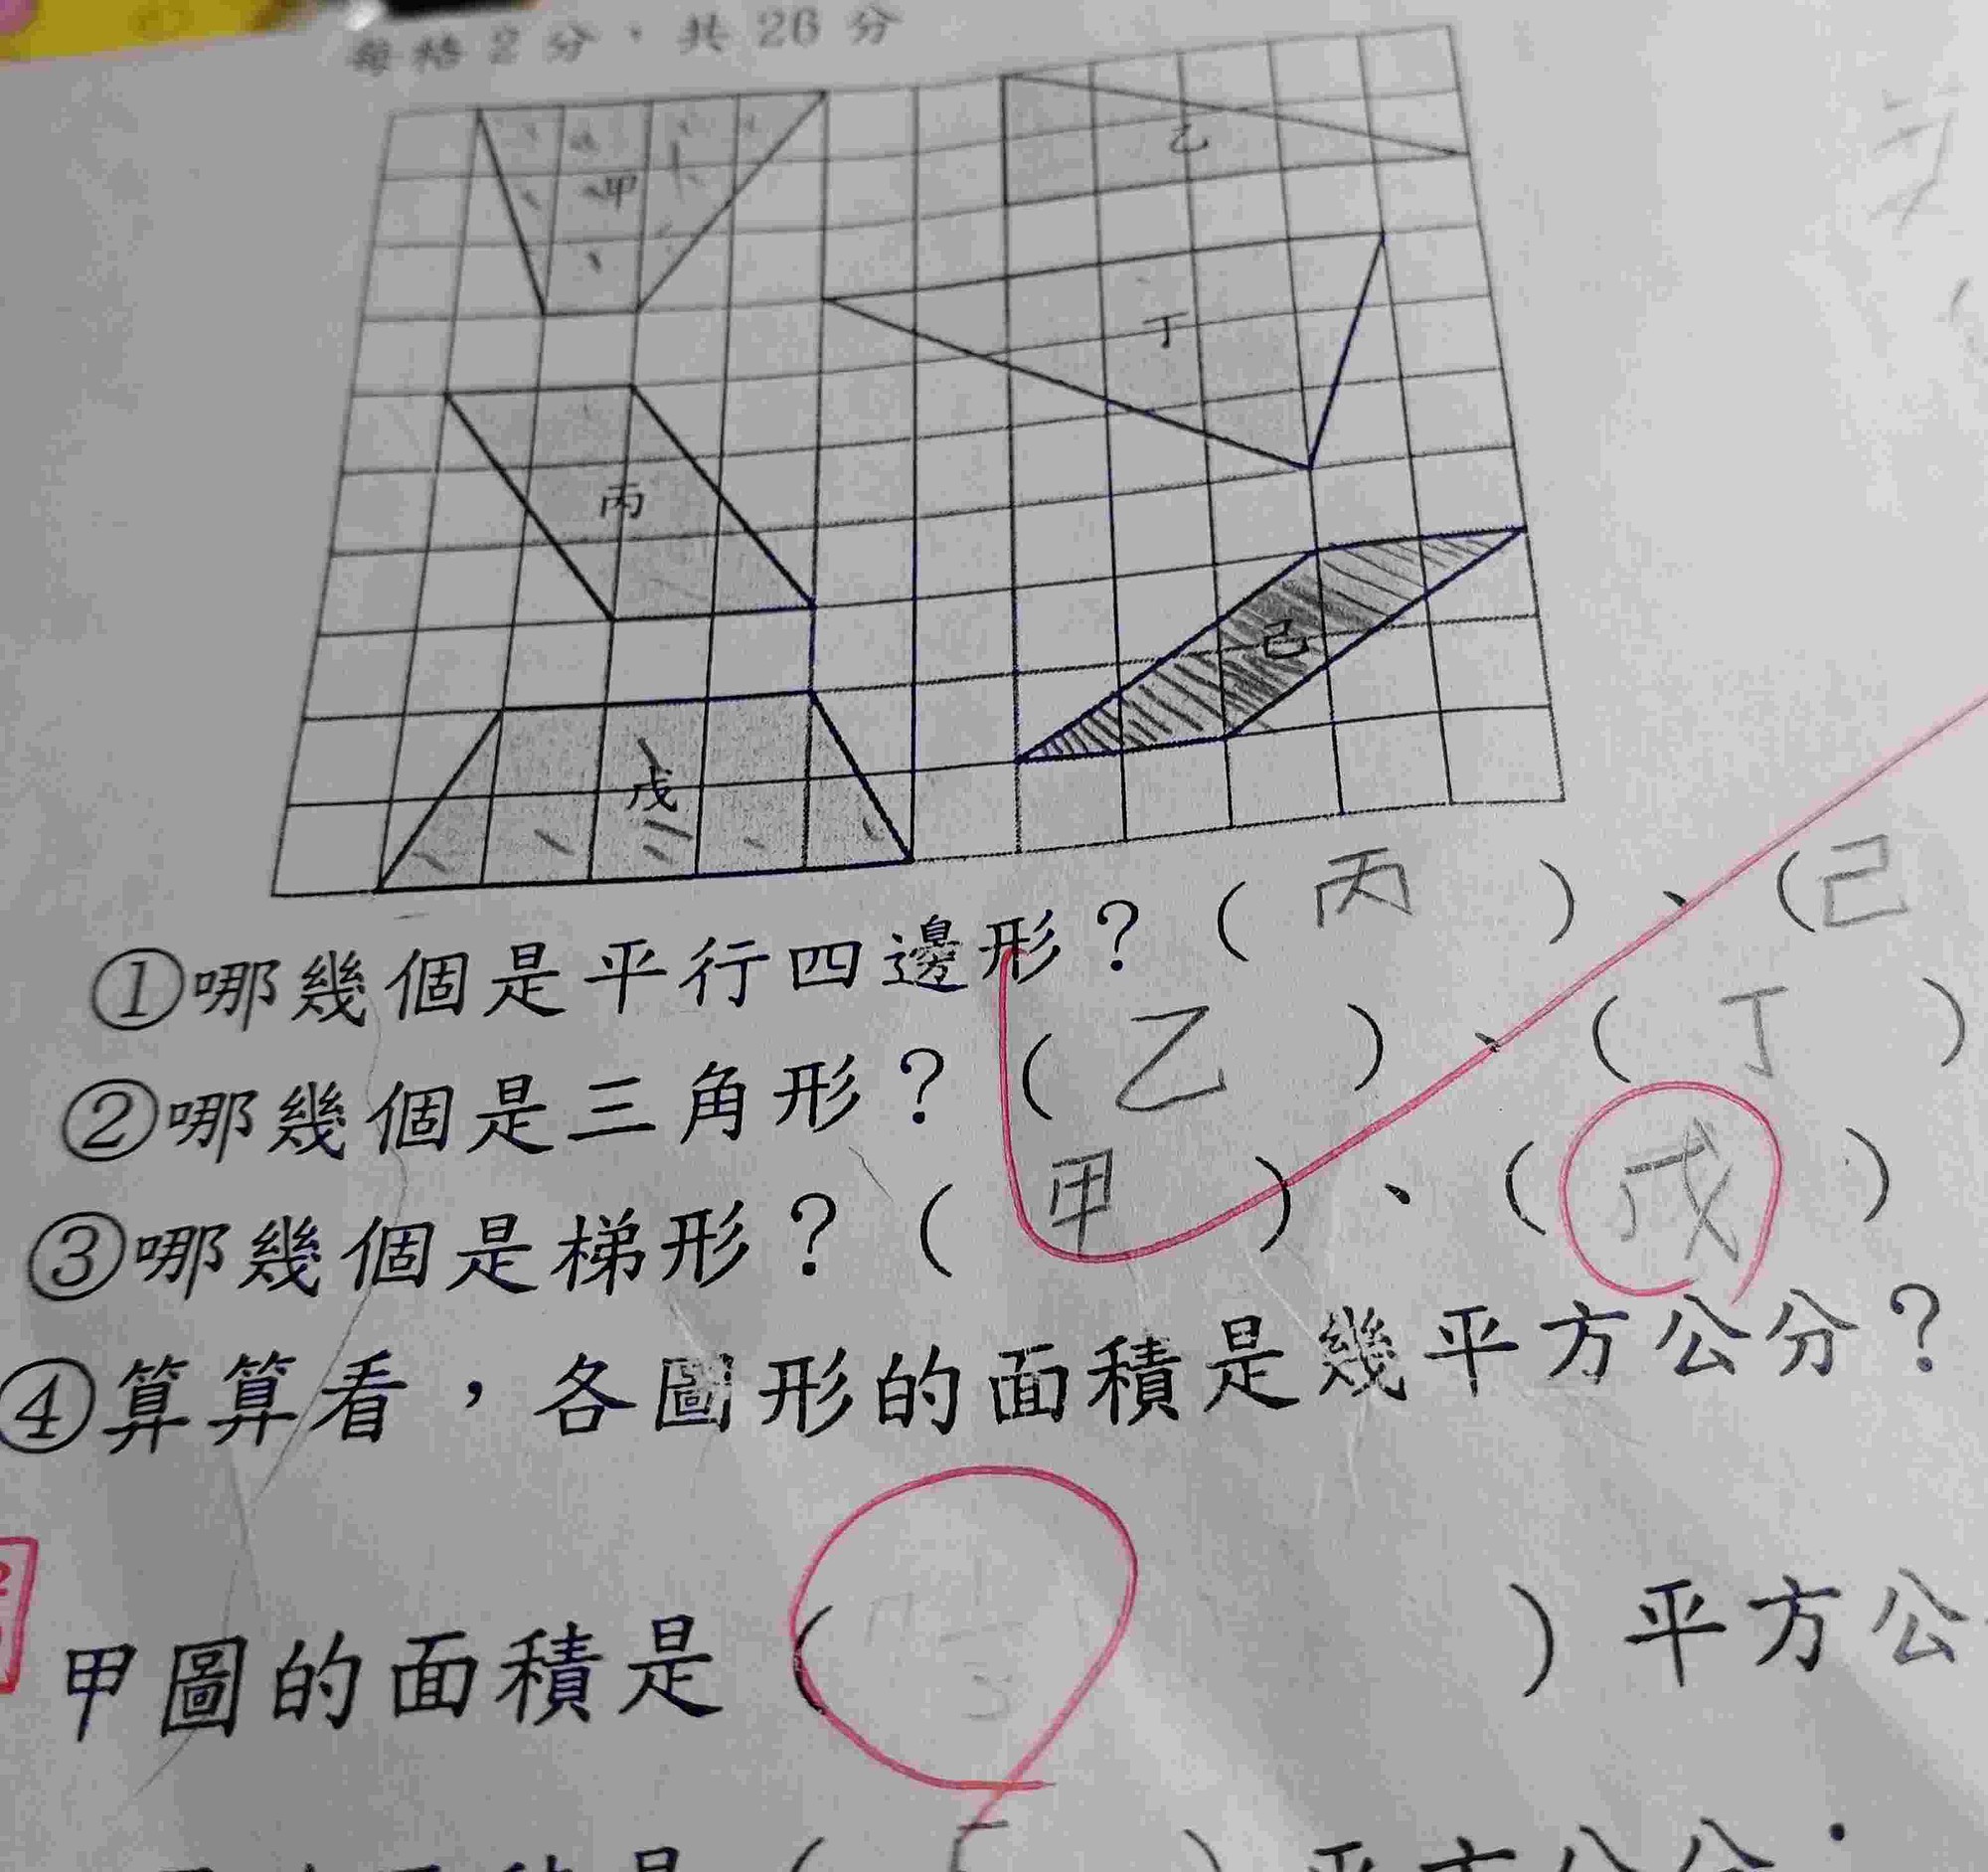 每格2分，共26分
甲
乙
丁
丙
己
戊
①哪幾個是平行四邊形？（ 丙 ）、（己
②哪幾個是三角形？（ 乙 ）、（ 丁 ）
③哪幾個是梯形？（ 甲 ）、（ 戌 ）
④算算看，各圖形的面積是幾平方公分？
甲圖的面積是（ ）平方公